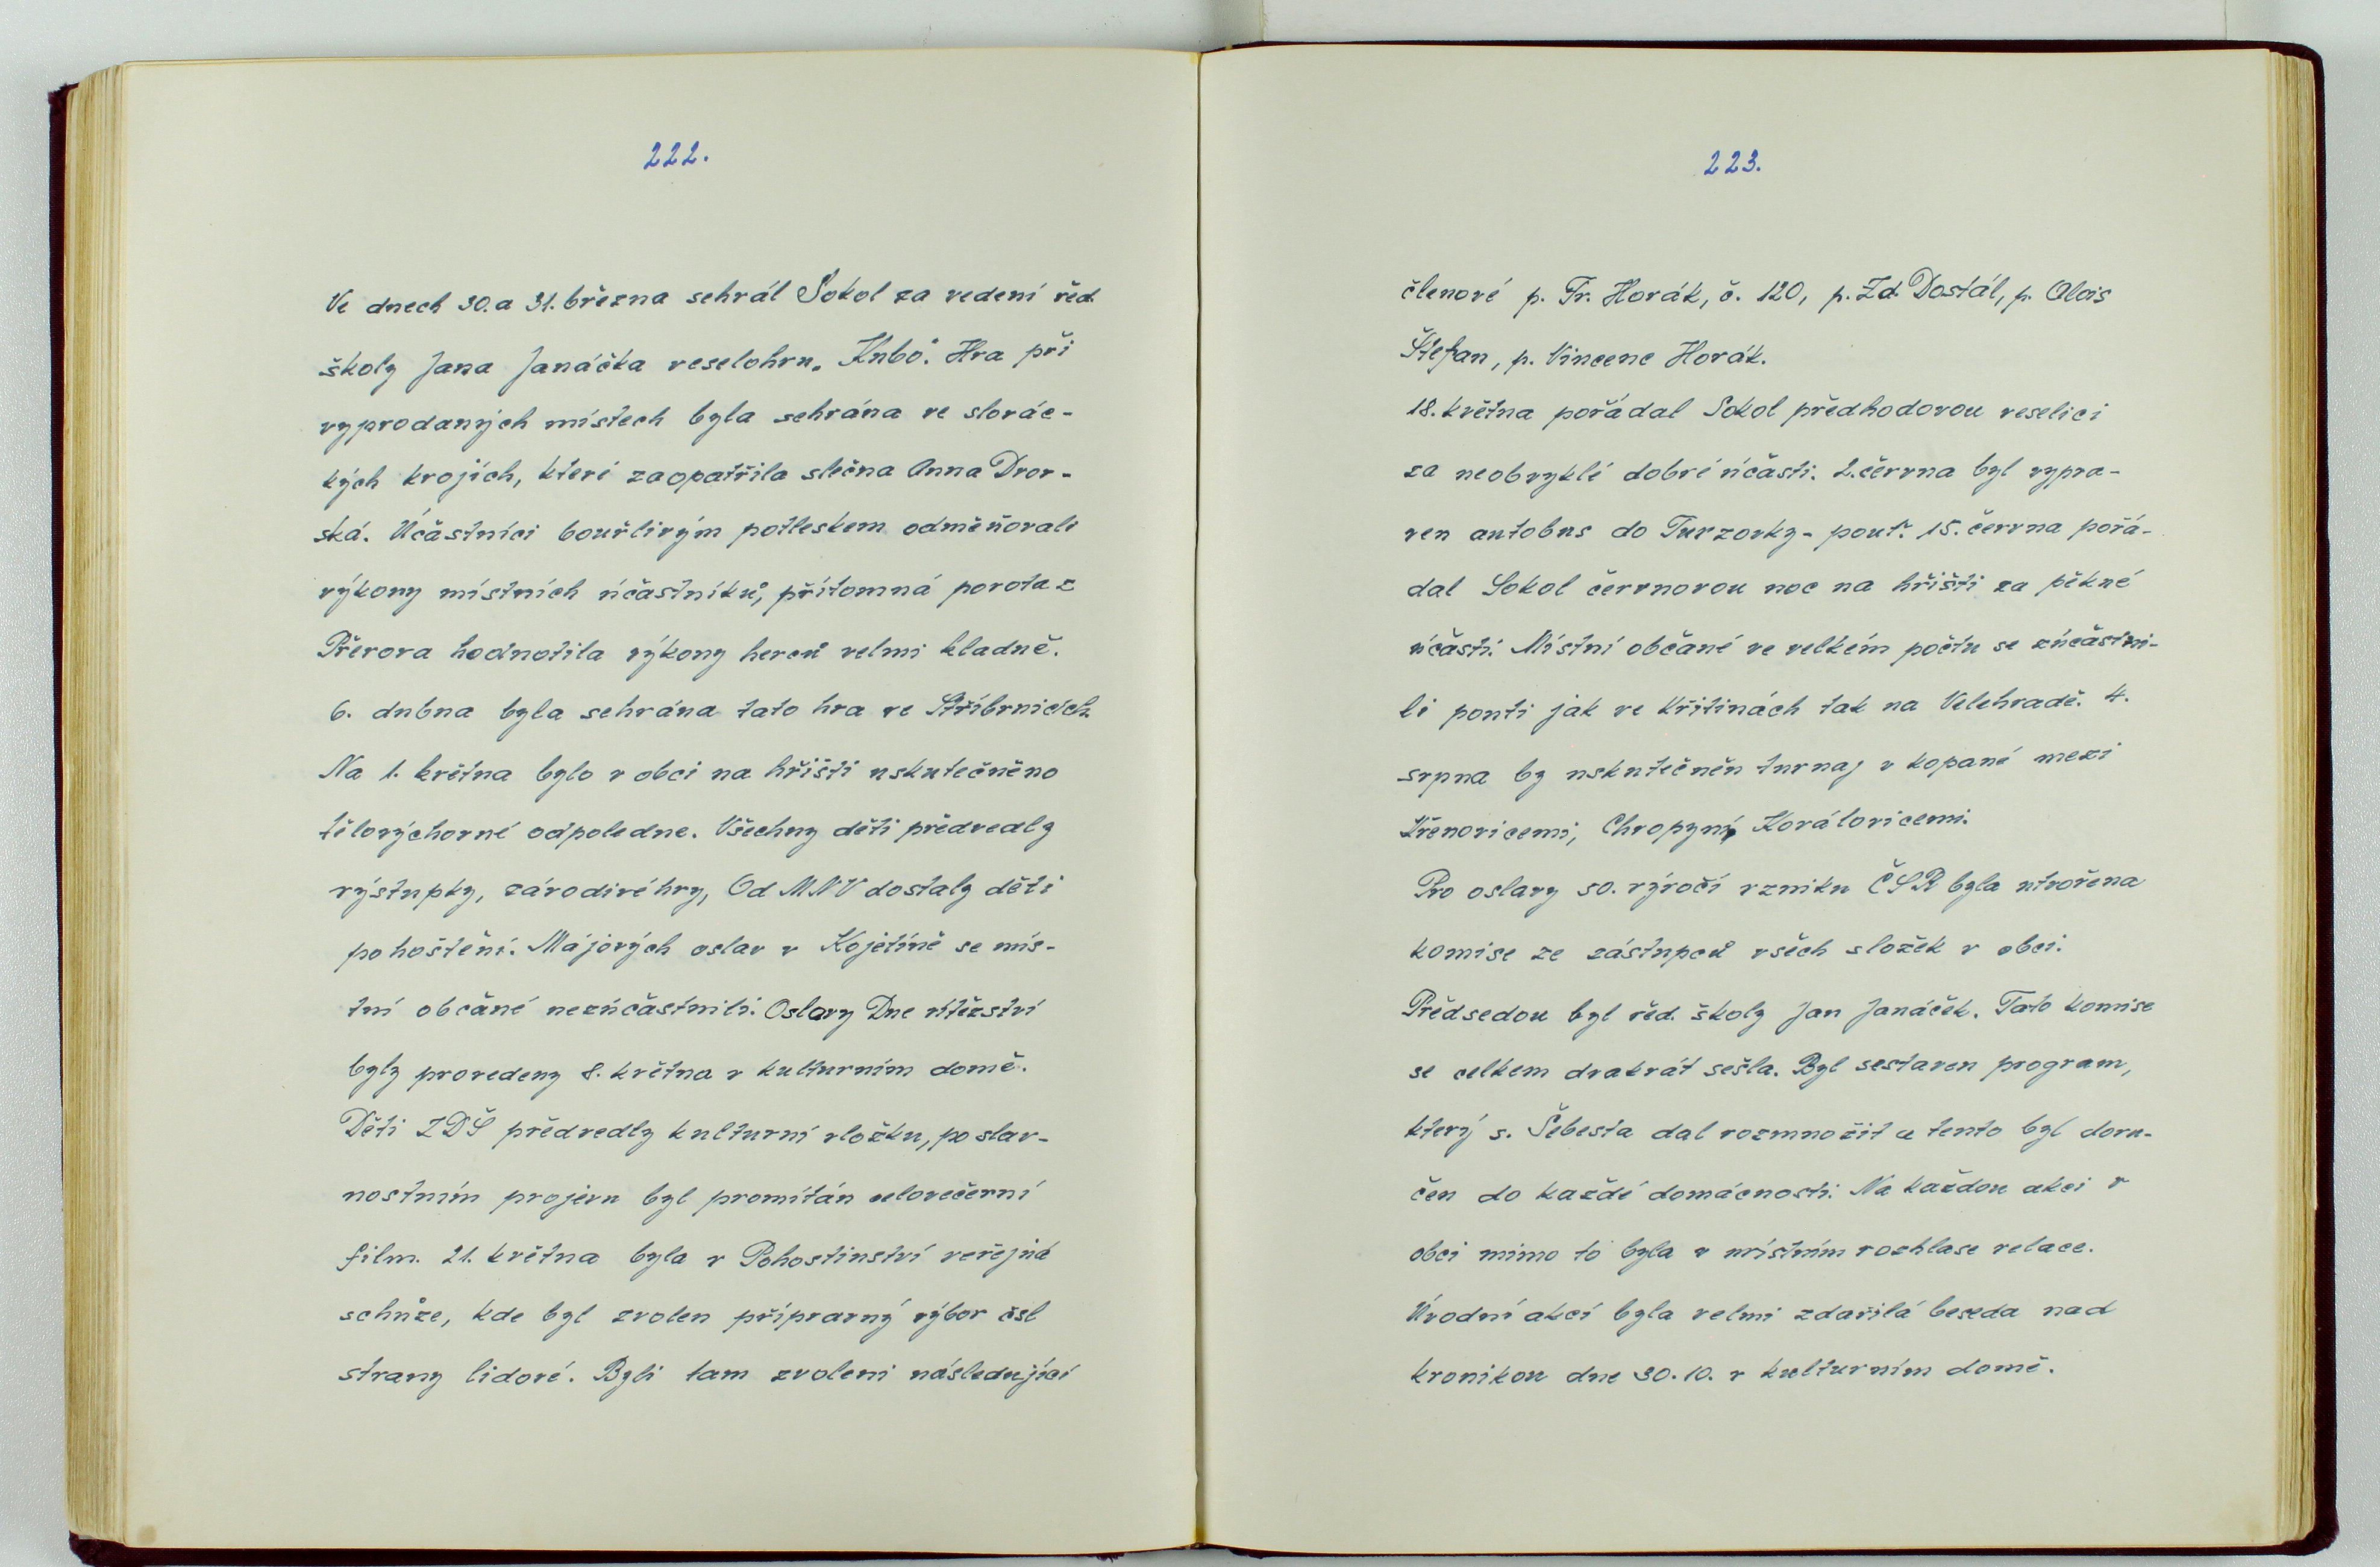 222.
Ve dnech 30. a 31. března sehrál Sokol za vedení řed.
školy Jana Janáčka veselohru „Kubo". Hra při
vyprodaných místech byla sehrána ve slovác-
kých krojích, které zaopatřila slečna Anna Dvor-
ská. Účastníci bouřlivým potleskem odměňovali
výkony místních účastníků, přítomná porota z
Přerova hodnotila výkony herců velmi kladně.
6. dubna byla sehrána tato hra ve Stříbrnicích.
Na 1. května bylo v obci na hřišti uskutečněno
tělovýchovné odpoledne. Všechny děti předvedly
výstupky, závodivé hry, Od MNV dostaly děti
pohoštění. Májových oslav v Kojetíně se mís-
tní občané nezúčastnili. Oslavy Dne vítězství
byly provedeny 8. května v kulturním domě.
Děti ZDŠ předvedly kulturní vložku, po slav-
nostním projevu byl promítán celovečerní
film. 21. května byla v Pohostinství veřejná
schůze, kde byl zvolen přípravný výbor čsl
strany lidové. Byli tam zvoleni následující
223.
členové p. Fr. Horák, č. 120, p. Zd. Dostál, p. Alois
Štefan, p. Vincenc Horák.
18. května pořádal Sokol předhodovou veselici
za neobvyklé dobré účasti. 2. června byl vypra-
ven autobus do Turzovky - pouť. 15. června pořá-
dal Sokol červnovou noc na hřišti za pěkné
účasti. Místní občané ve velkém počtu se zúčastni-
li pouti jak ve Křtinách tak na Velehradě. 4.
srpna by uskutečněn turnaj v kopané mezi
Křenovicemi, Chropyní, Kovátovicemi.
Pro oslavy 50. výročí vzniku ČSR byla utvořena
komise ze zástupců všech složek v obci.
Předsedou byl řed. školy Jan Janáček. Tato komise
se celkem dvakrát sešla. Byl sestaven program,
který s. Šebesta dal rozmnožit a tento byl doru-
čen do každé domácnosti. Na každou akci v
obci mimo to byla v místním rozhlase relace.
Úvodní akcí byla velmi zdařilá beseda nad
kronikou dne 30. 10. v kulturním domě.